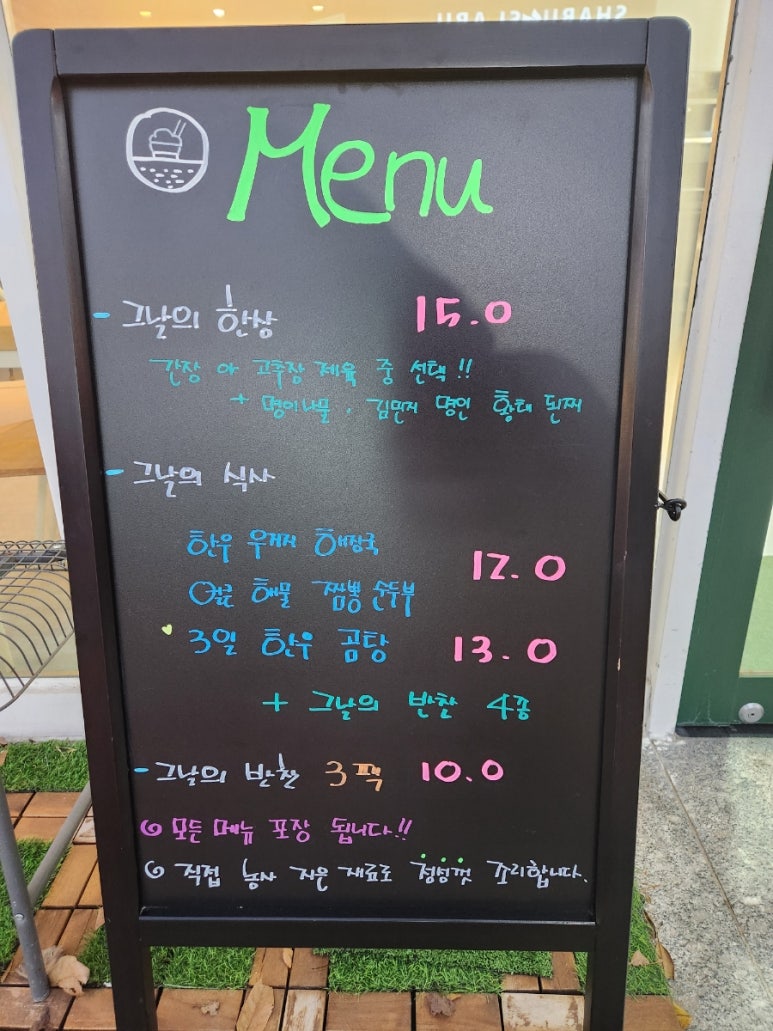 Menu
- 그날의 한상 15.0
간장 or 고추장 제육 중 선택!!
+ 명이나물, 김민지 명인 황태 된찌
- 그날의 식사
한우 우거지 해장국
얼큰 해물 짬뽕 순두부 12.0
3일 한우 곰탕 13.0
+ 그날의 반찬 4종
- 그날의 반찬 3팩 10.0
모든 메뉴 포장 됩니다!!
직접 농사 지은 재료로 정성껏 조리합니다.